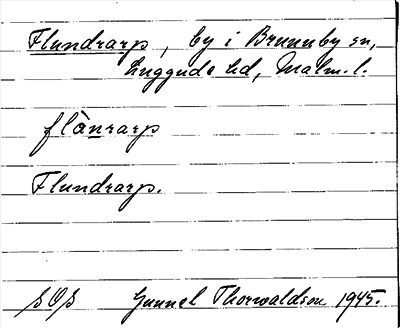 Flundrarp, by i Brunnby sn,
Luggude hd, Malm. l.
flànrarp
Flundrarp.
SOS Gunnel Thorwaldson 1945.